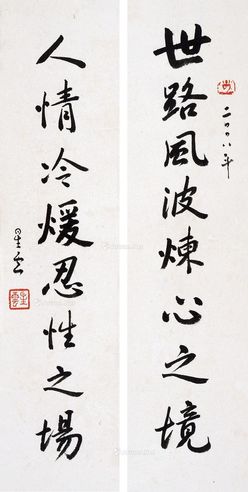 世路風波煉心之境
二〇〇八年
人情冷煖忍性之場
星雲